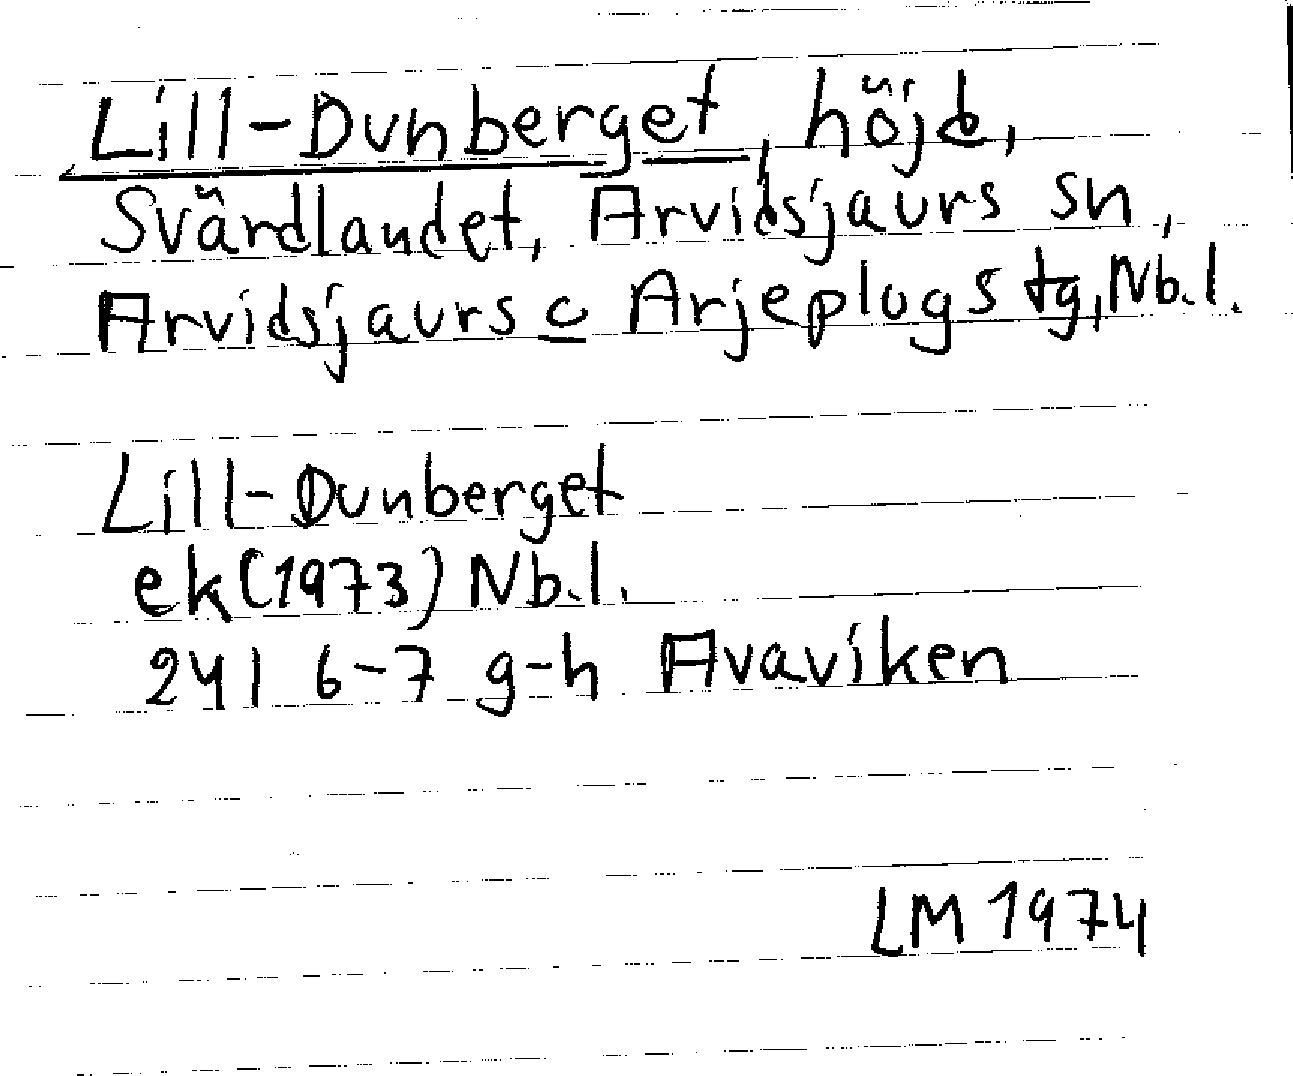 Lill-Dunberget, höjd,
Svärdlandet, Arvidsjaurs sn,
Arvidsjaurs o Arjeplogs tg, Nb.l.
Lill-Dunberget
ek(1973) Nb.l.
24I 6-7 g-h Avaviken
LM 1974